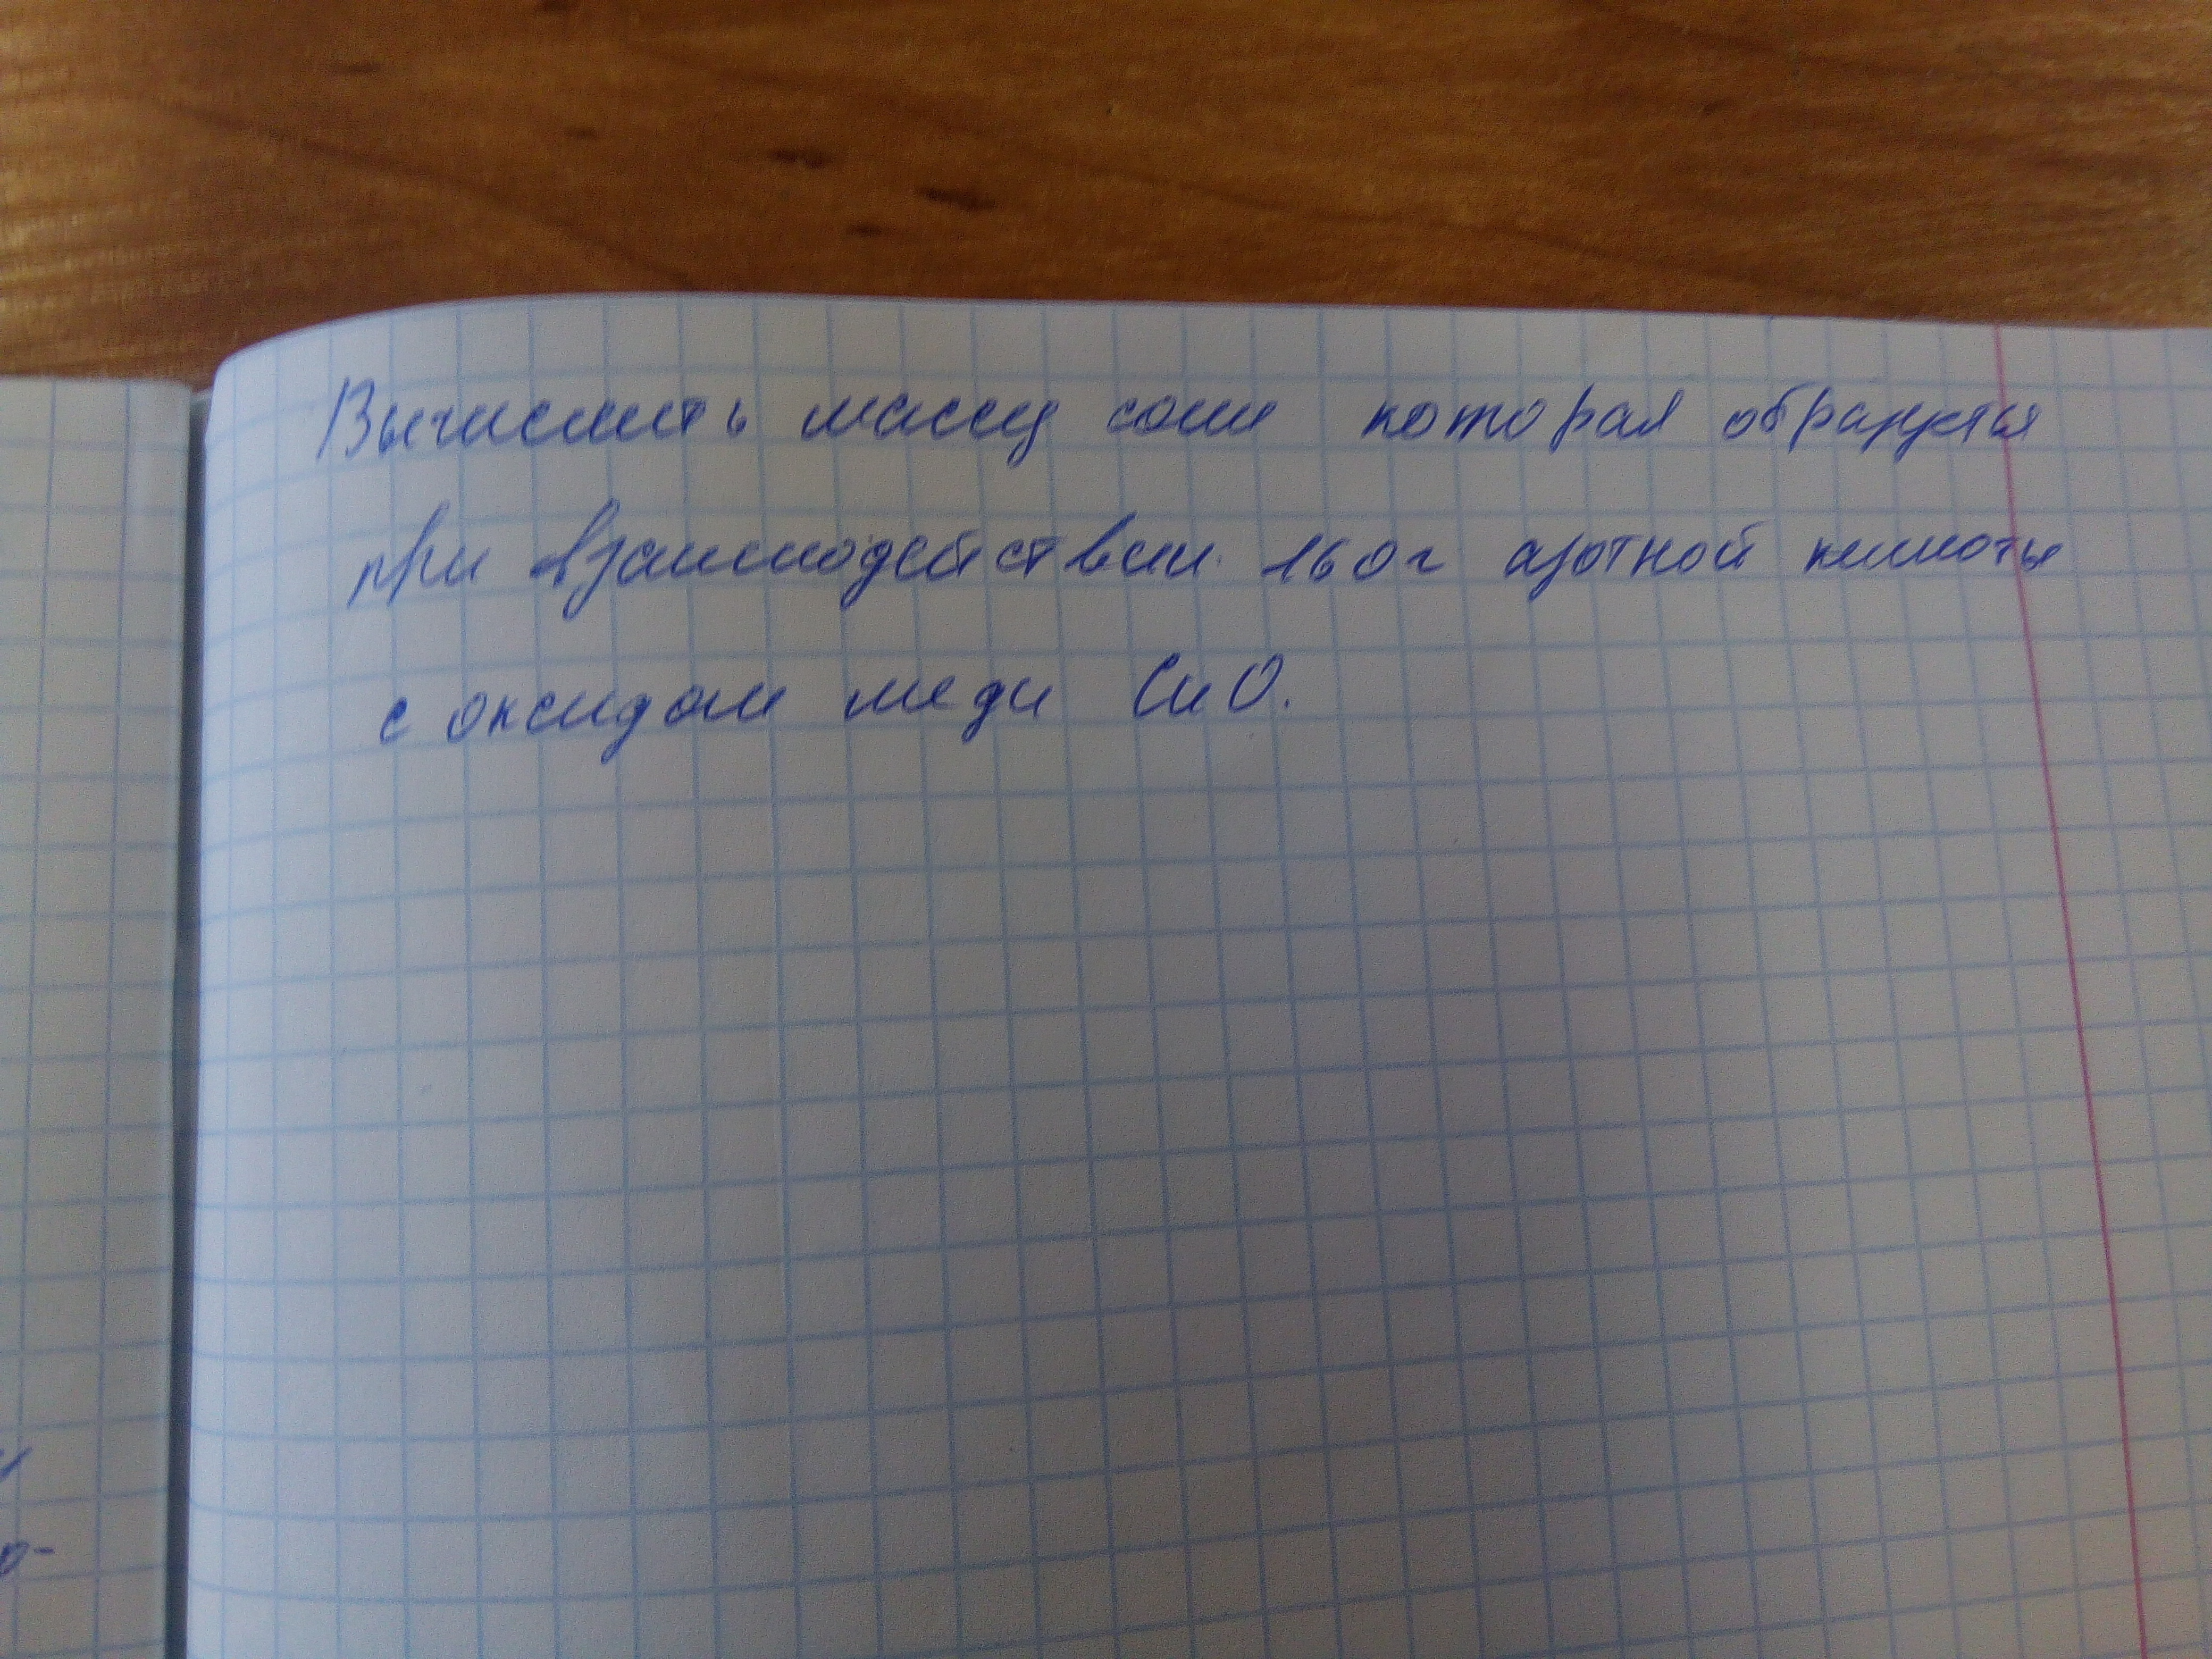 Вычислить массу соли которая образуется
при взаимодействии 160г азотной кислоты
с оксидом меди CuO.